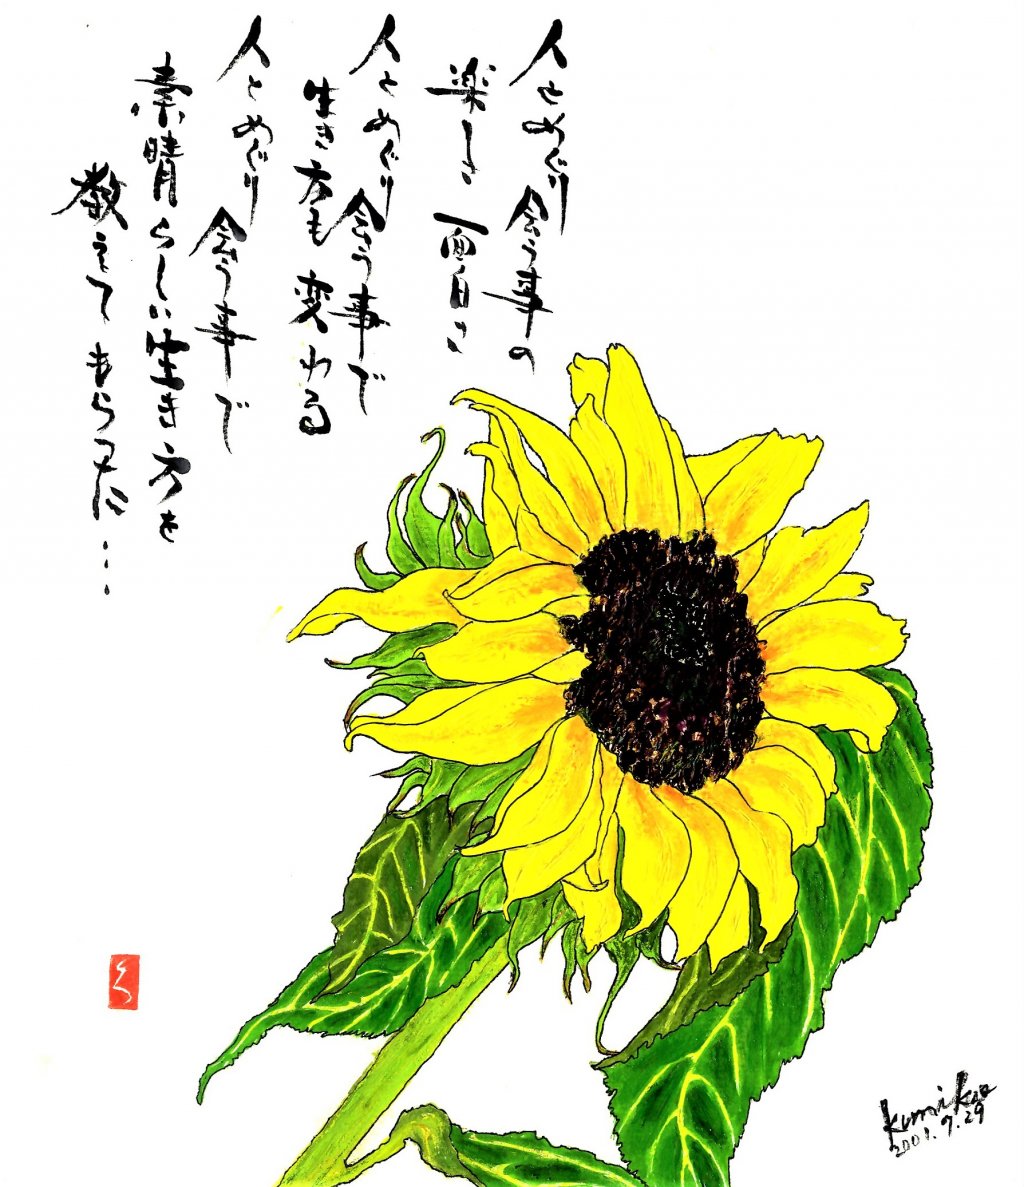 人とめぐり会う事の
楽しさ面白さ
人とめぐり会う事で
生き方も変わる
人とめぐり会う事で
素晴らしい生き方を
教えてもらった...
Kumiko
2001.7.29